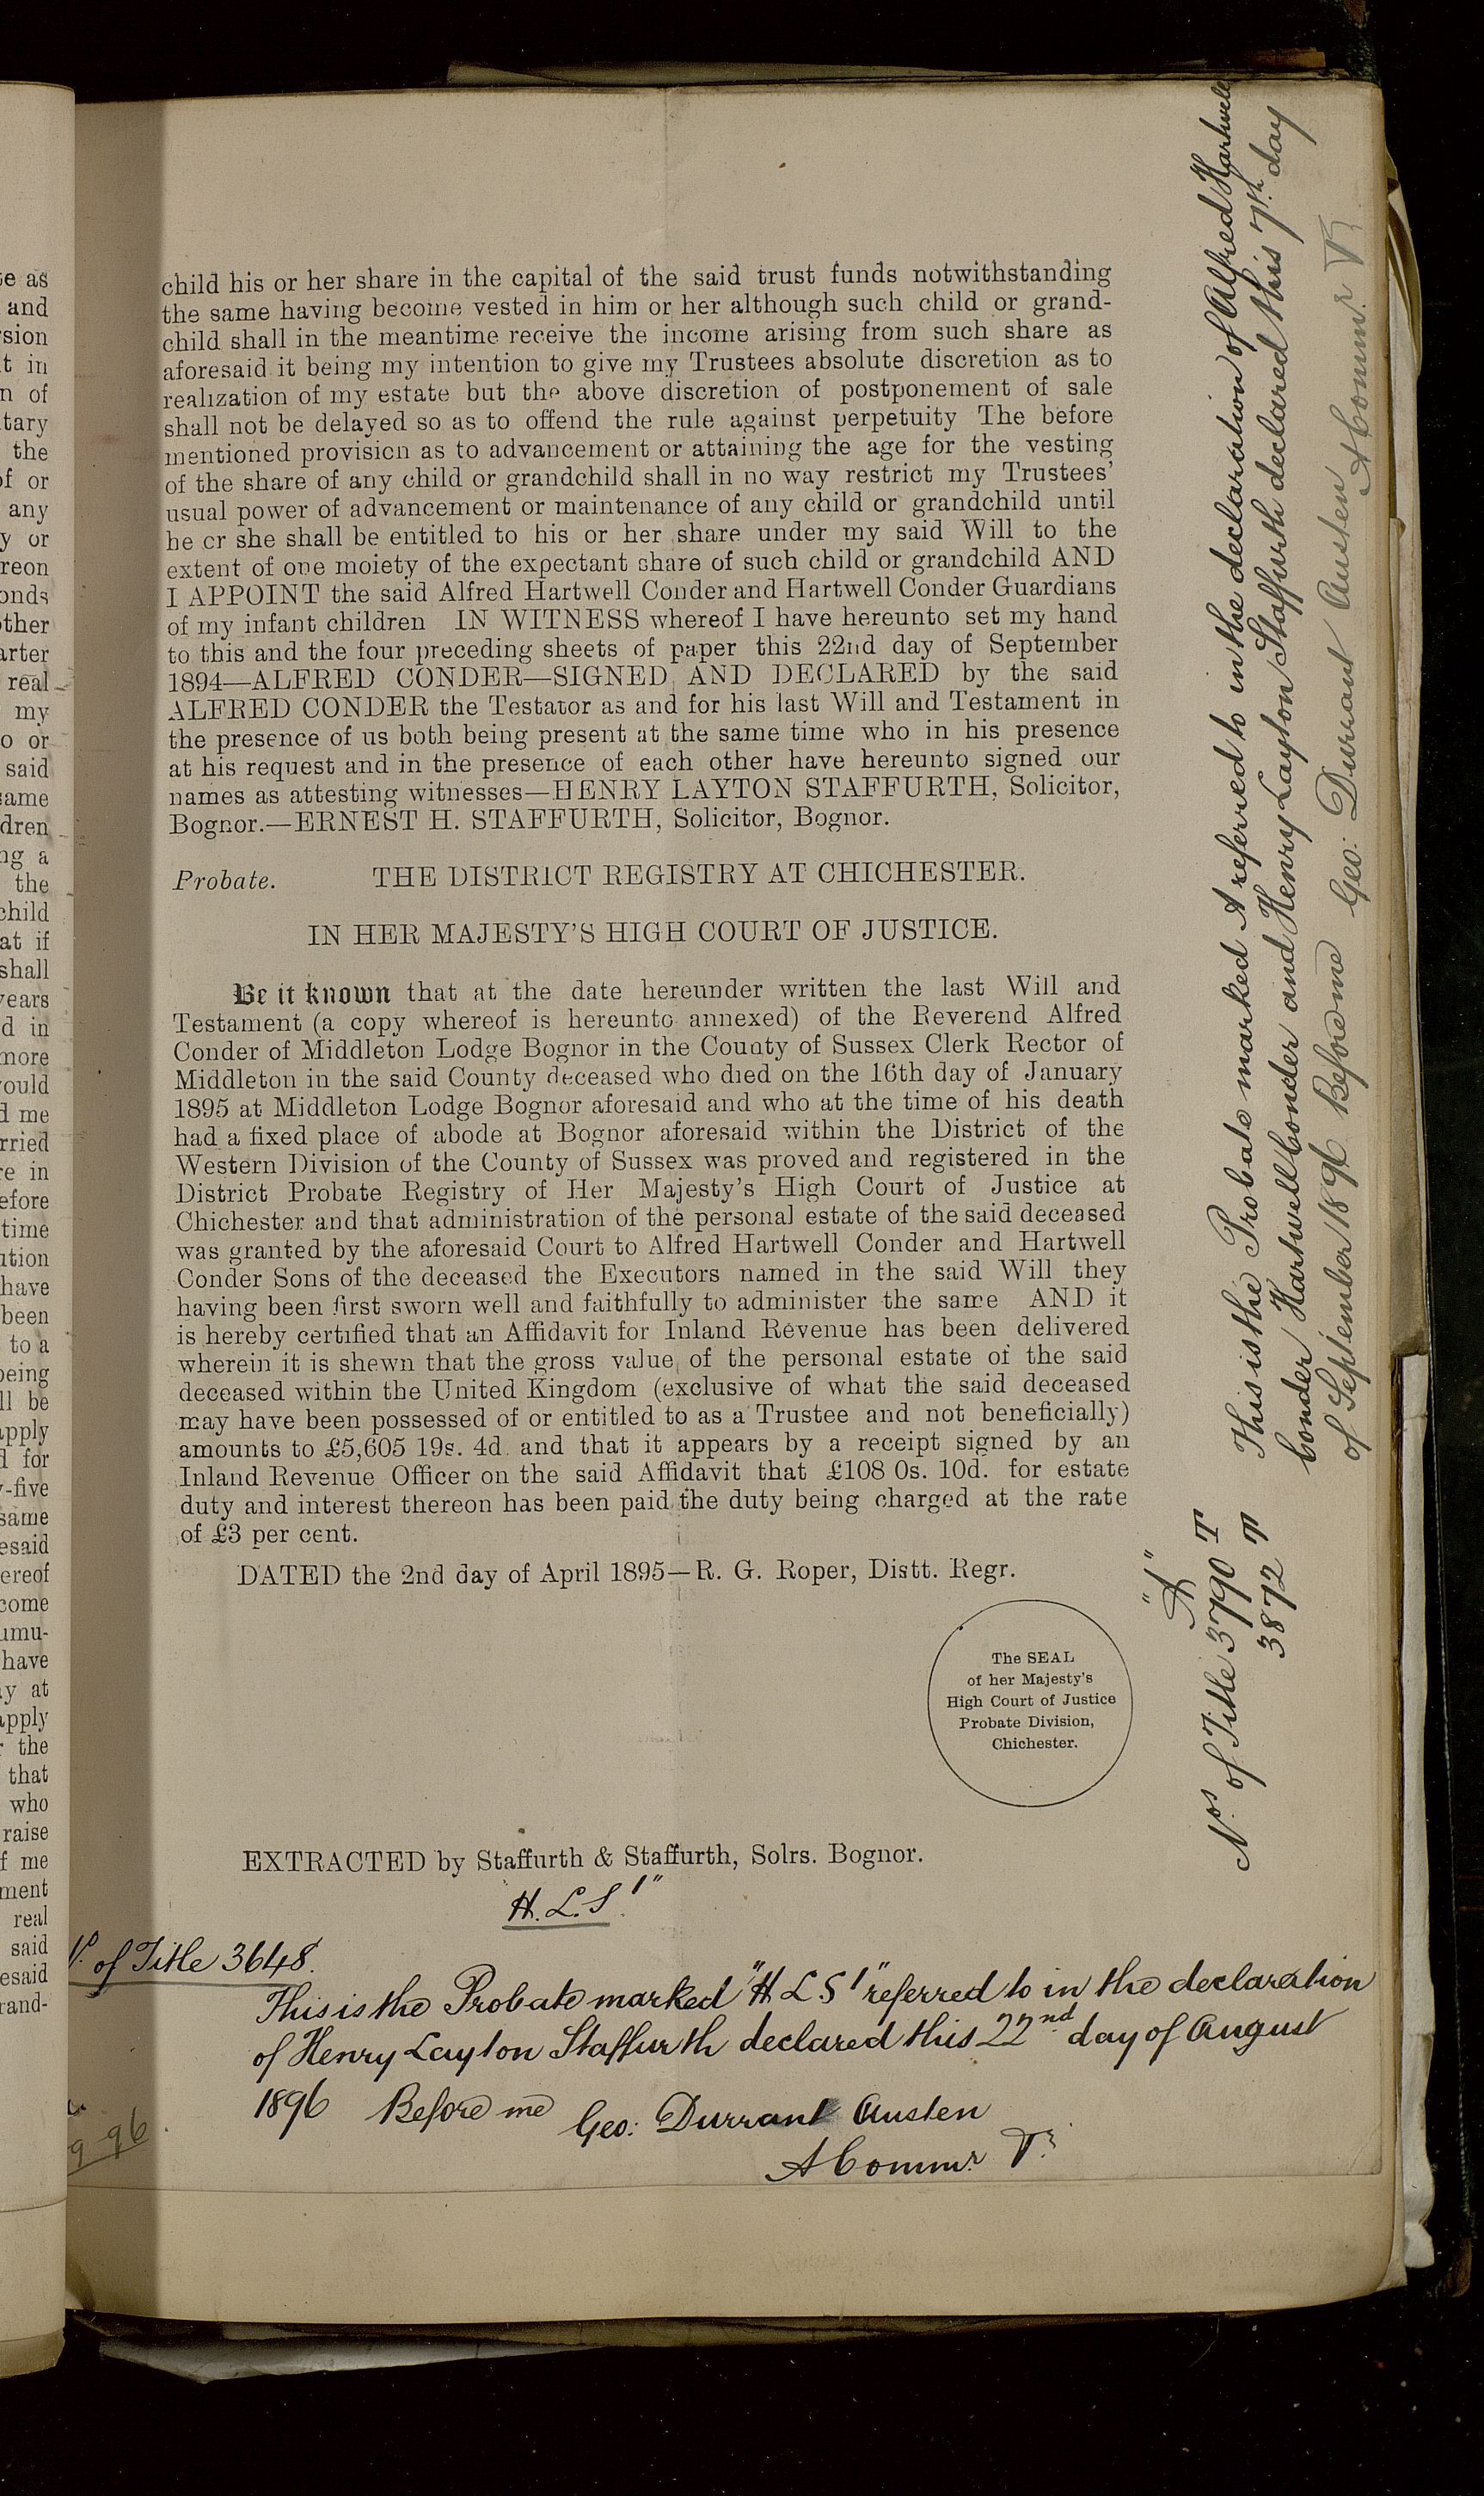 child his or her share in the capital of the said trust funds notwithstanding
the same having become vested in him or her although such child or grand-
child shall in the meantime receive the income arising from such share as
aforesaid it being my intention to give my Trustees absolute discretion as to
realization of my estate but the above discretion of postponement of sale
shall not be delayed so as to offend the rule against perpetuity The before
mentioned provision as to advancement or attaining the age for the vesting
of the share of any child or grandchild shall in no way restrict my Trustees'
usual power of advancement or maintenance of any child or grandchild until
he or she shall be entitled to his or her share under my said Will to the
extent of one moiety of the expectant share of such child or grandchild AND
I APPOINT the said Alfred Hartwell Conder and Hartwell Conder Guardians
of my infant children IN WITNESS whereof I have hereunto set my hand
to this and the four preceding sheets of paper this 22nd day of September
1894—ALFRED CONDER—SIGNED AND DECLARED by the said
ALFRED CONDER the Testator as and for his last Will and Testament in
the presence of us both being present at the same time who in his presence
at his request and in the presence of each other have hereunto signed our
names as attesting witnesses—HENRY LAYTON STAFFURTH, Solicitor,
Bognor.—ERNEST H. STAFFURTH, Solicitor, Bognor.
Probate. THE DISTRICT REGISTRY AT CHICHESTER.
IN HER MAJESTY'S HIGH COURT OF JUSTICE.
Be it known that at the date hereunder written the last Will and
Testament (a copy whereof is hereunto annexed) of the Reverend Alfred
Conder of Middleton Lodge Bognor in the County of Sussex Clerk Rector of
Middleton in the said County deceased who died on the 16th day of January
1895 at Middleton Lodge Bognor aforesaid and who at the time of his death
had a fixed place of abode at Bognor aforesaid within the District of the
Western Division of the County of Sussex was proved and registered in the
District Probate Registry of Her Majesty's High Court of Justice at
Chichester and that administration of the personal estate of the said deceased
was granted by the aforesaid Court to Alfred Hartwell Conder and Hartwell
Conder Sons of the deceased the Executors named in the said Will they
having been first sworn well and faithfully to administer the same AND it
is hereby certified that an Affidavit for Inland Revenue has been delivered
wherein it is shewn that the gross value of the personal estate of the said
deceased within the United Kingdom (exclusive of what the said deceased
may have been possessed of or entitled to as a Trustee and not beneficially)
amounts to £5,605 19s. 4d. and that it appears by a receipt signed by an
Inland Revenue Officer on the said Affidavit that £108 0s. 10d. for estate
duty and interest thereon has been paid the duty being charged at the rate
of £3 per cent.
DATED the 2nd day of April 1895—R. G. Roper, Distt. Regr.
The SEAL
of her Majesty's
High Court of Justice
Probate Division,
Chichester.
EXTRACTED by Staffurth & Staffurth, Solrs. Bognor.
H.L.S 1"
of Title 3648.
This is the Probate marked "H L S 1" referred to in the declaration
of Henry Layton Staffurth declared this 22nd day of August
1896 Before me Geo: Durrant Austen
A Commr.
"A"
Nos of Title 3790 T
3872 T
This is the Probate marked A referred to in the declaration of Alfred Hartwell
Conder Hartwell Conder and Henry Layton Staffurth declared this 7th day
of September 1896 Before me Geo: Durrant Austen A Commr.
te as
and
rsion
t in
n of
tary
the
of or
any
y or
reon
onds
other
arter
real
my
o or
said
same
dren
ng a
the
child
at if
shall
years
d in
more
would
d me
rried
re in
efore
time
ution
have
been
to a
being
ll be
apply
d for
y-five
same
esaid
ereof
come
umu-
have
ay at
apply
r the
that
who
raise
f me
ment
real
said
esaid
rand-
9 96